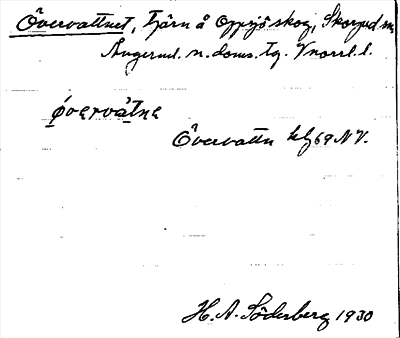 Övervattnet, Tjärn å Oppsjö skog, Skorped sn,
Ångerml. n. doms. tg. Vnorrl. l.
ǿvərvàtnə
Övervattn kbl 69 NV.
H. A. Söderberg 1930